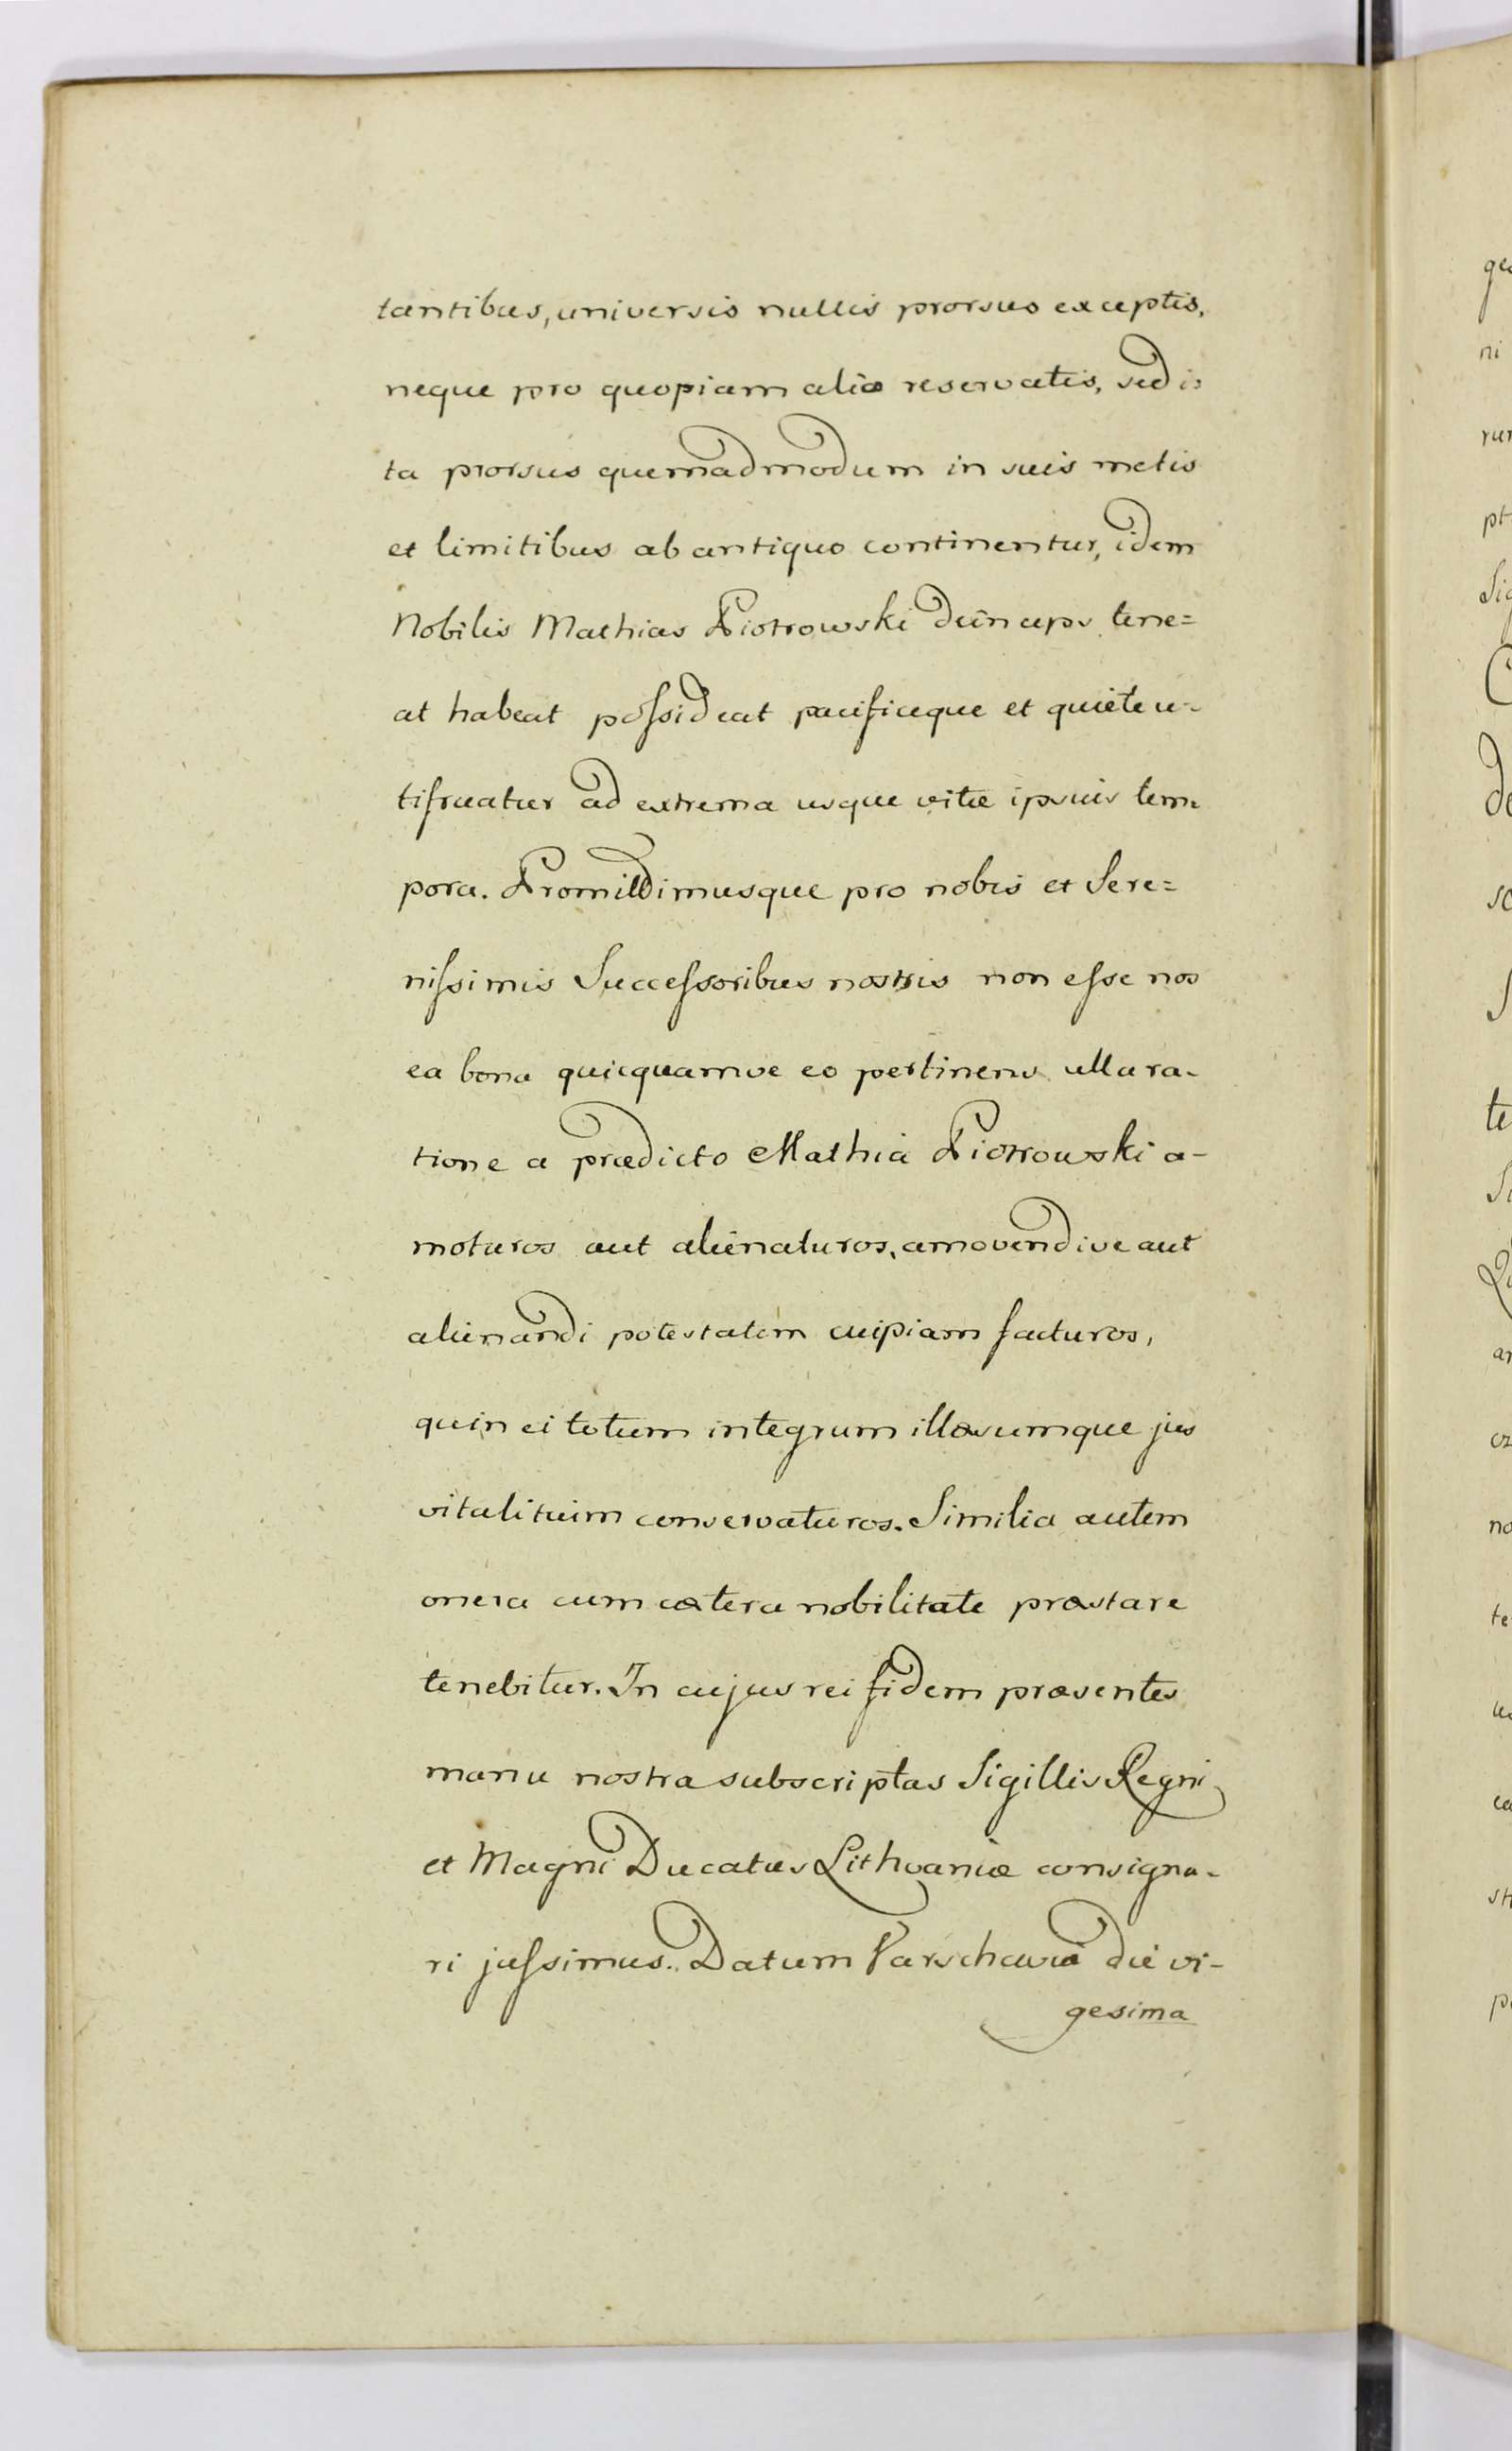 tantibus, universis nullis prorsus exceptis,
neque pro quopiam alio reservatis, sed i=
ta prorsus quemadmodum in suis metis
et limitibus ab antiquo continentur, idem
Nobilis Mathias Piotrowski deinceps tene=
at habeat possideat pacificeque et quiete u-
tifruatur ad extrema usque vitæ ipsius tem=
pora. Promittimusque pro nobis et Sere=
nissimis Successoribus nostris non esse nos
ea bona quicquamve eo pertinens ulla ra-
tione a prædicto Mathia Piotrowski a-
moturos aut alienaturos, amovendive aut
alienandi potestatem cuipiam facturos,
quin ei totum integrum illæsumque jus
vitalitium conservaturos. Similia autem
onera cum cætera nobilitate præstare
tenebitur. In cujus rei fidem præsentes
manu nostra subscriptas Sigillis Regni
et Magni Ducatus Lithvaniæ consigna-
ri jussimus. Datum Varschaviæ die vi-
gesima